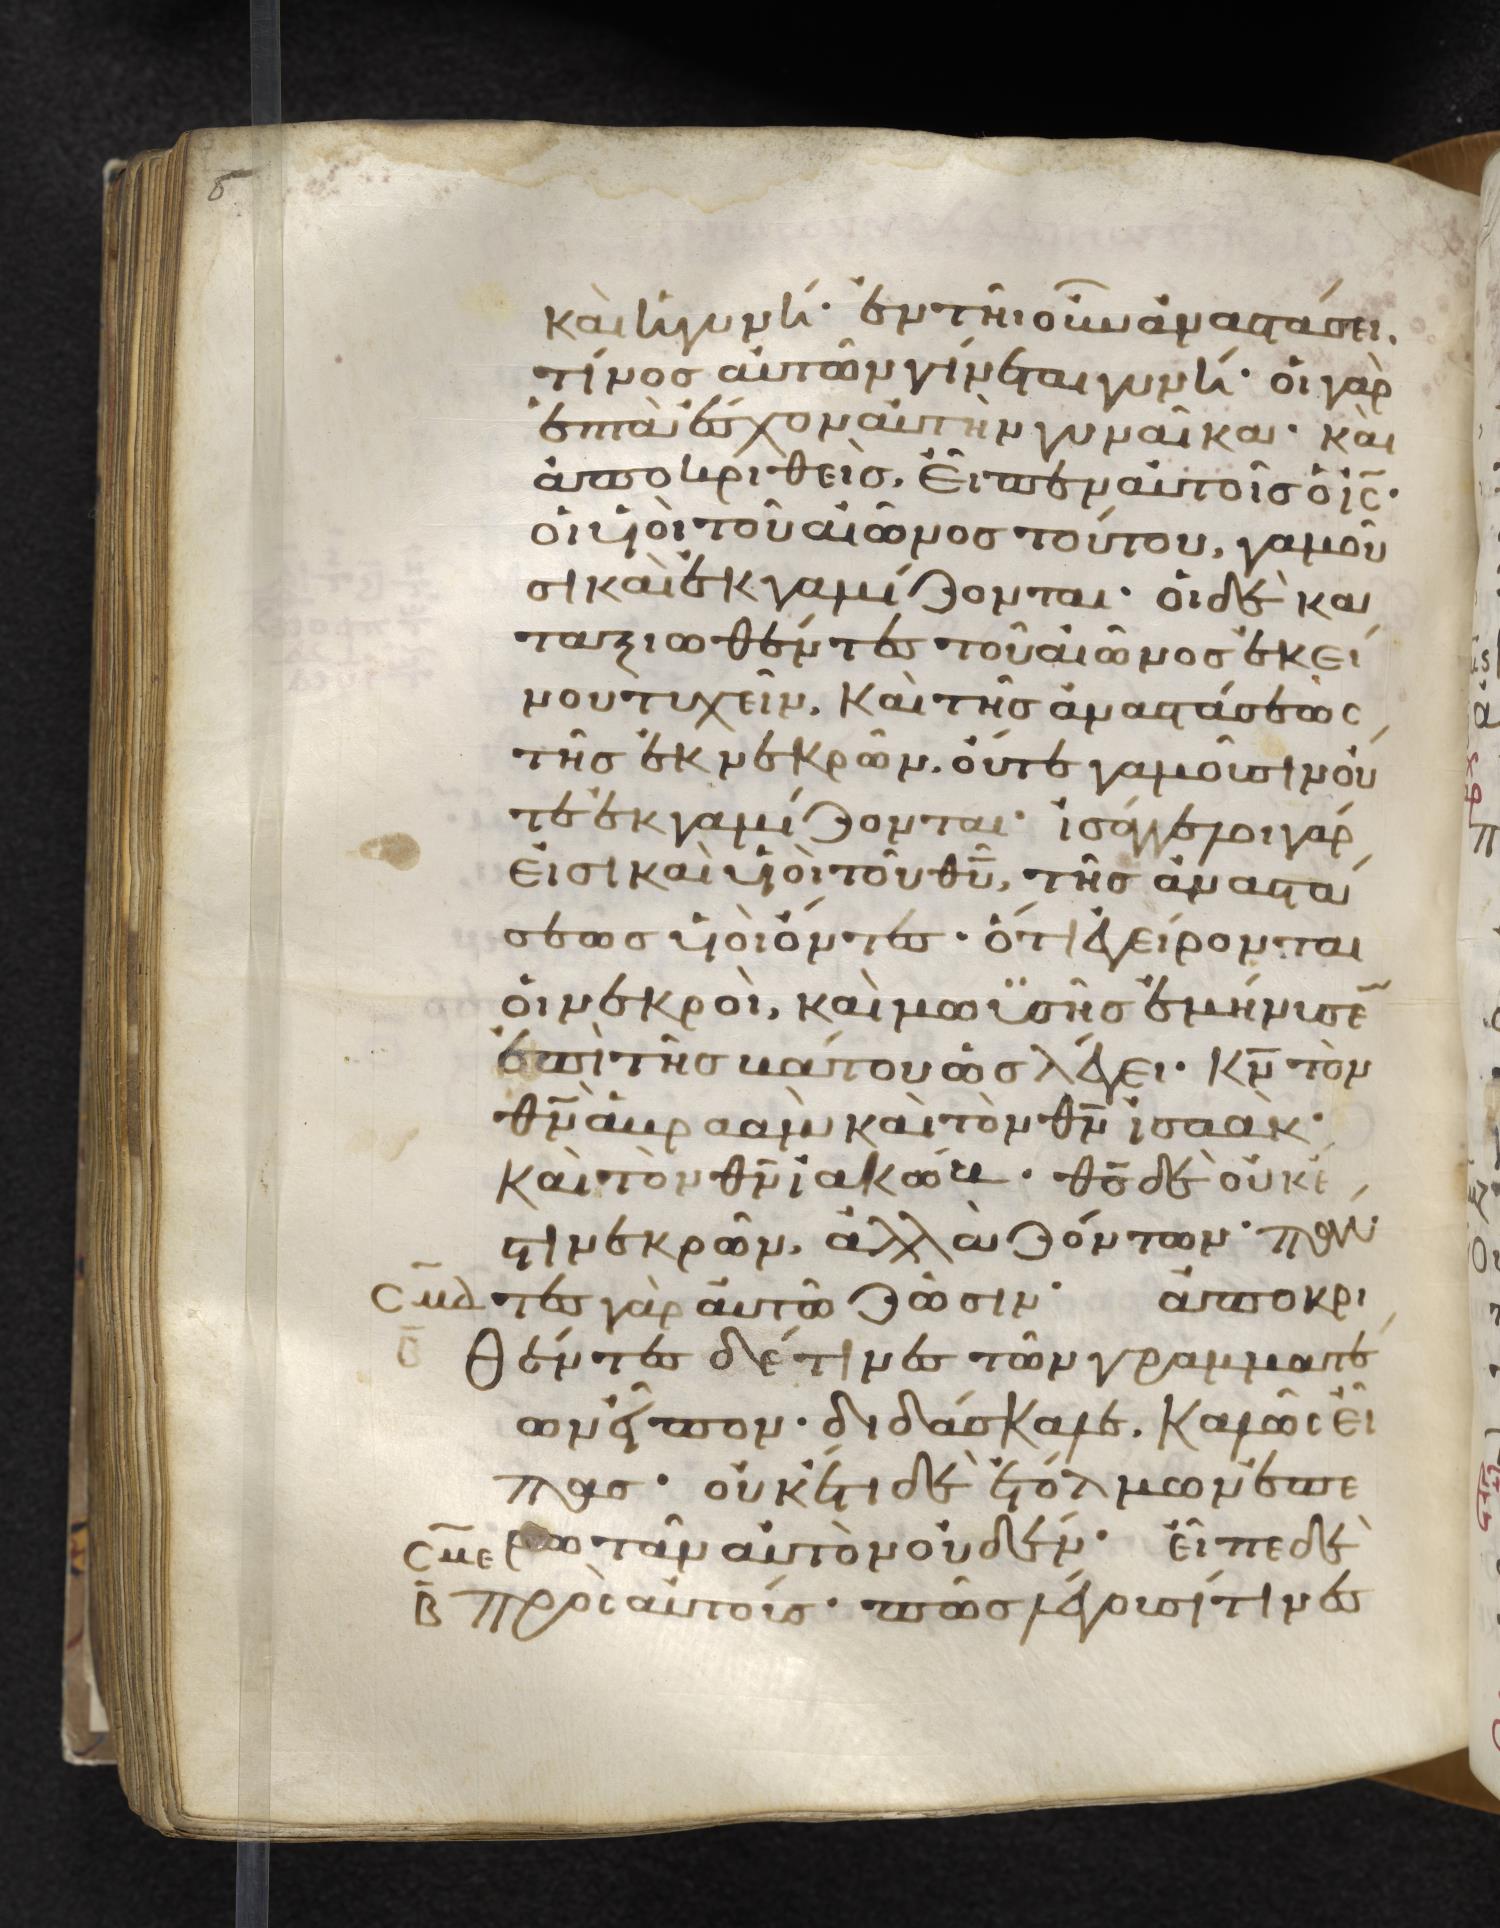 καὶ ἡ γυνή· ἐν τῆι οὖν ἀναστάσει,
τίνος αὐτῶν γίνεται γυνή· οἱ γὰρ
ἑπτὰ ἔσχον αὐτὴν γυναῖκα· καὶ
ἀποκριθεὶς, εἶπεν αὐτοῖς ὁ ις̅·
οἱ υἱοὶ τοῦ αἰῶνος τούτου, γαμοῦ
σι καὶ ἐκγαμίζονται· οἱ δὲ κα
ταξιωθέντες τοῦ αἰῶνος ἐκεί
νου τυχεῖν, καὶ τῆς ἀναστάσεως
τῆς ἐκ νεκρῶν, οὔτε γαμοῦσιν οὔ
τε ἐκγαμίζονται· ἰσάγγελοι γάρ
εἰσι καὶ υἱοὶ τοῦ θυ̅, τῆς ἀναστά
σεως υἱοὶ ὄντες· ὅτι ἐγείρονται
οἱ νεκροὶ, καὶ μωϋσῆς ἐμήνυσε̅
ἐπὶ τῆς βάτου ὡς λέγει· κν̅ τὸν
θν̅ ἀβραὰμ καὶ τὸν θν̅ ἰσαὰκ·
καὶ τὸν θν̅ ἰακώβ· θς̅ δὲ οὐκ ἔ
στι νεκρῶν, ἀλλὰ ζόντων· πάν
σμδ τες γὰρ αὐτῶ ζῶσιν· ἀποκρι
β̅ θέντες δέ τινες τῶν γραμματέ
ων εἶπον· διδάσκαλε, καλῶς εἶ
πας· οὐκ έτι δὲ ἐτόλμων ἐπε
σμε ρωτᾶν αὐτὸν οὐδέν· εἶπε δὲ
β̅ πρὸς αὐτοίς· πῶς λέγουσί τινες